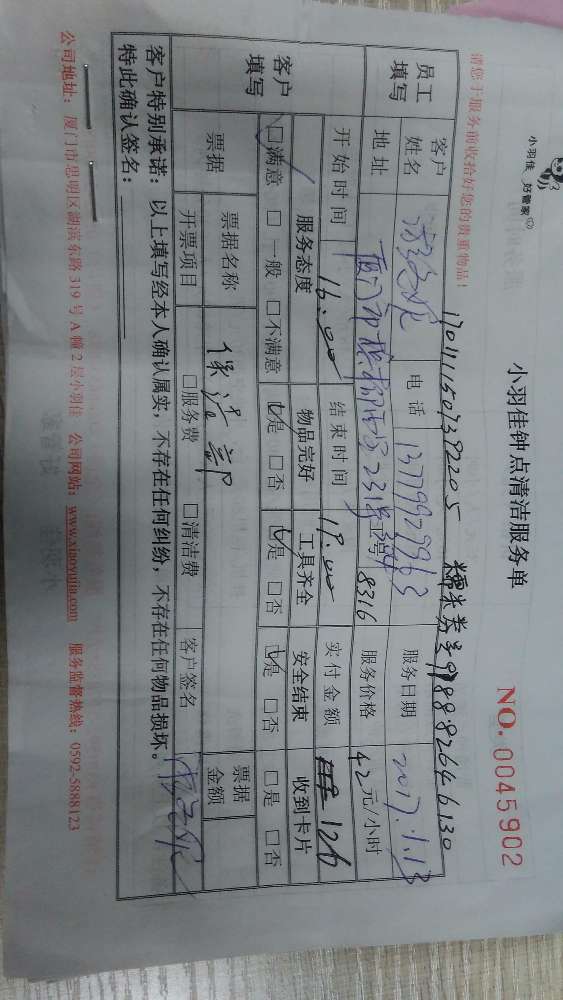 小羽佳 好管家
小羽佳钟点清洁服务单
NO. 0045902
请您于服务前收拾好您的贵重物品!
糯米券号
员工填写
客户姓名
电话 13779929963
服务日期 2017.1.13
地址
工号 8316
服务价格 42元/小时
开始时间 16:00
结束时间 19:00
实付金额 126
客户填写
服务态度 物品完好 工具齐全 安全结束 收到卡片
☑满意 □一般 □不满意 ☑是 □否 ☑是 □否 ☑是 □否 □是 □否
票据
票据名称 保洁部
票据金额
开票项目 □服务费 □清洁费
客户签名
客户特别承诺:以上填写经本人确认属实,不存在任何纠纷,不存在任何物品损坏。
特此确认签名:
公司地址:厦门市思明区湖滨东路319号A幢2层小羽佳 公司网站:www.xiaoyujia.com 服务监督热线:0592-5888123